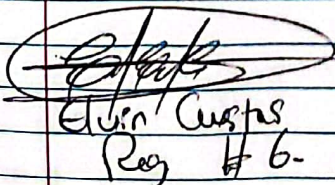 Elvin Cuestas
Reg # 6-